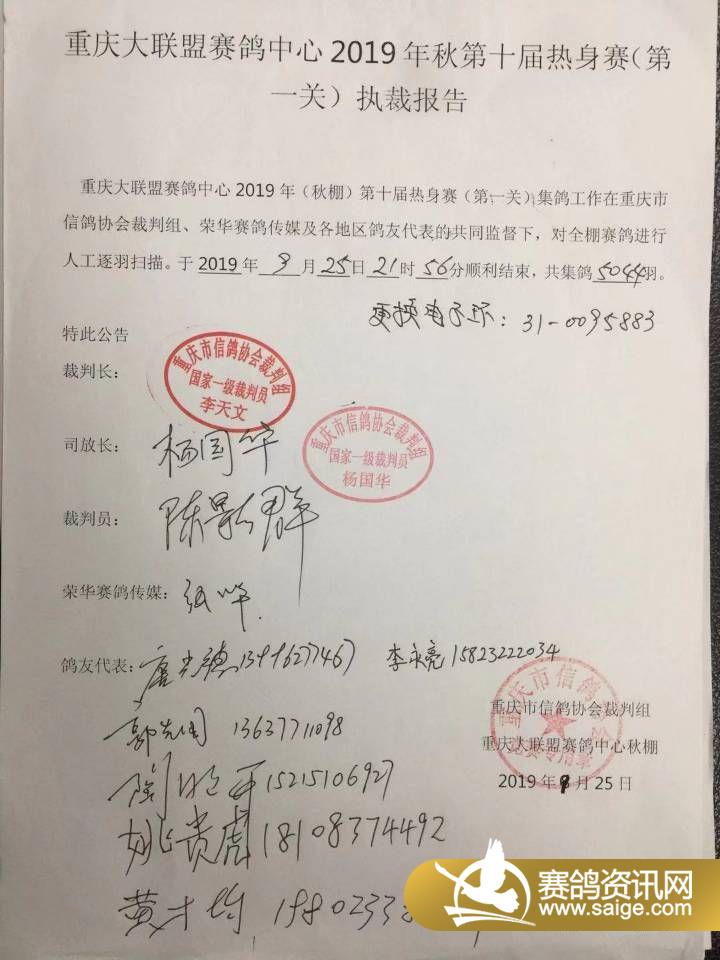 重庆大联盟赛鸽中心2019年秋第十届热身赛（第
一关）执裁报告
重庆大联盟赛鸽中心2019年（秋棚）第十届热身赛（第一关）集鸽工作在重庆市
信鸽协会裁判组、荣华赛鸽传媒及各地区鸽友代表的共同监督下，对全棚赛鸽进行
人工逐羽扫描。于2019年9月25日21时56分顺利结束，共集鸽5044羽。
更换电子环：31-0095883
特此公告
裁判长：
重庆市信鸽协会裁判组
国家一级裁判员
李天文
司放长：杨国华
重庆市信鸽协会裁判组
国家一级裁判员
杨国华
裁判员：陈
荣华赛鸽传媒：
鸽友代表：
李永亮15823222034
13637711098
重庆市信鸽协会
重庆市信鸽协会裁判组
重庆大联盟赛鸽中心秋棚
2019年9月25日
15215106927
姚贵虎18108374492
黄才均
赛鸽资讯网
www.saige.com